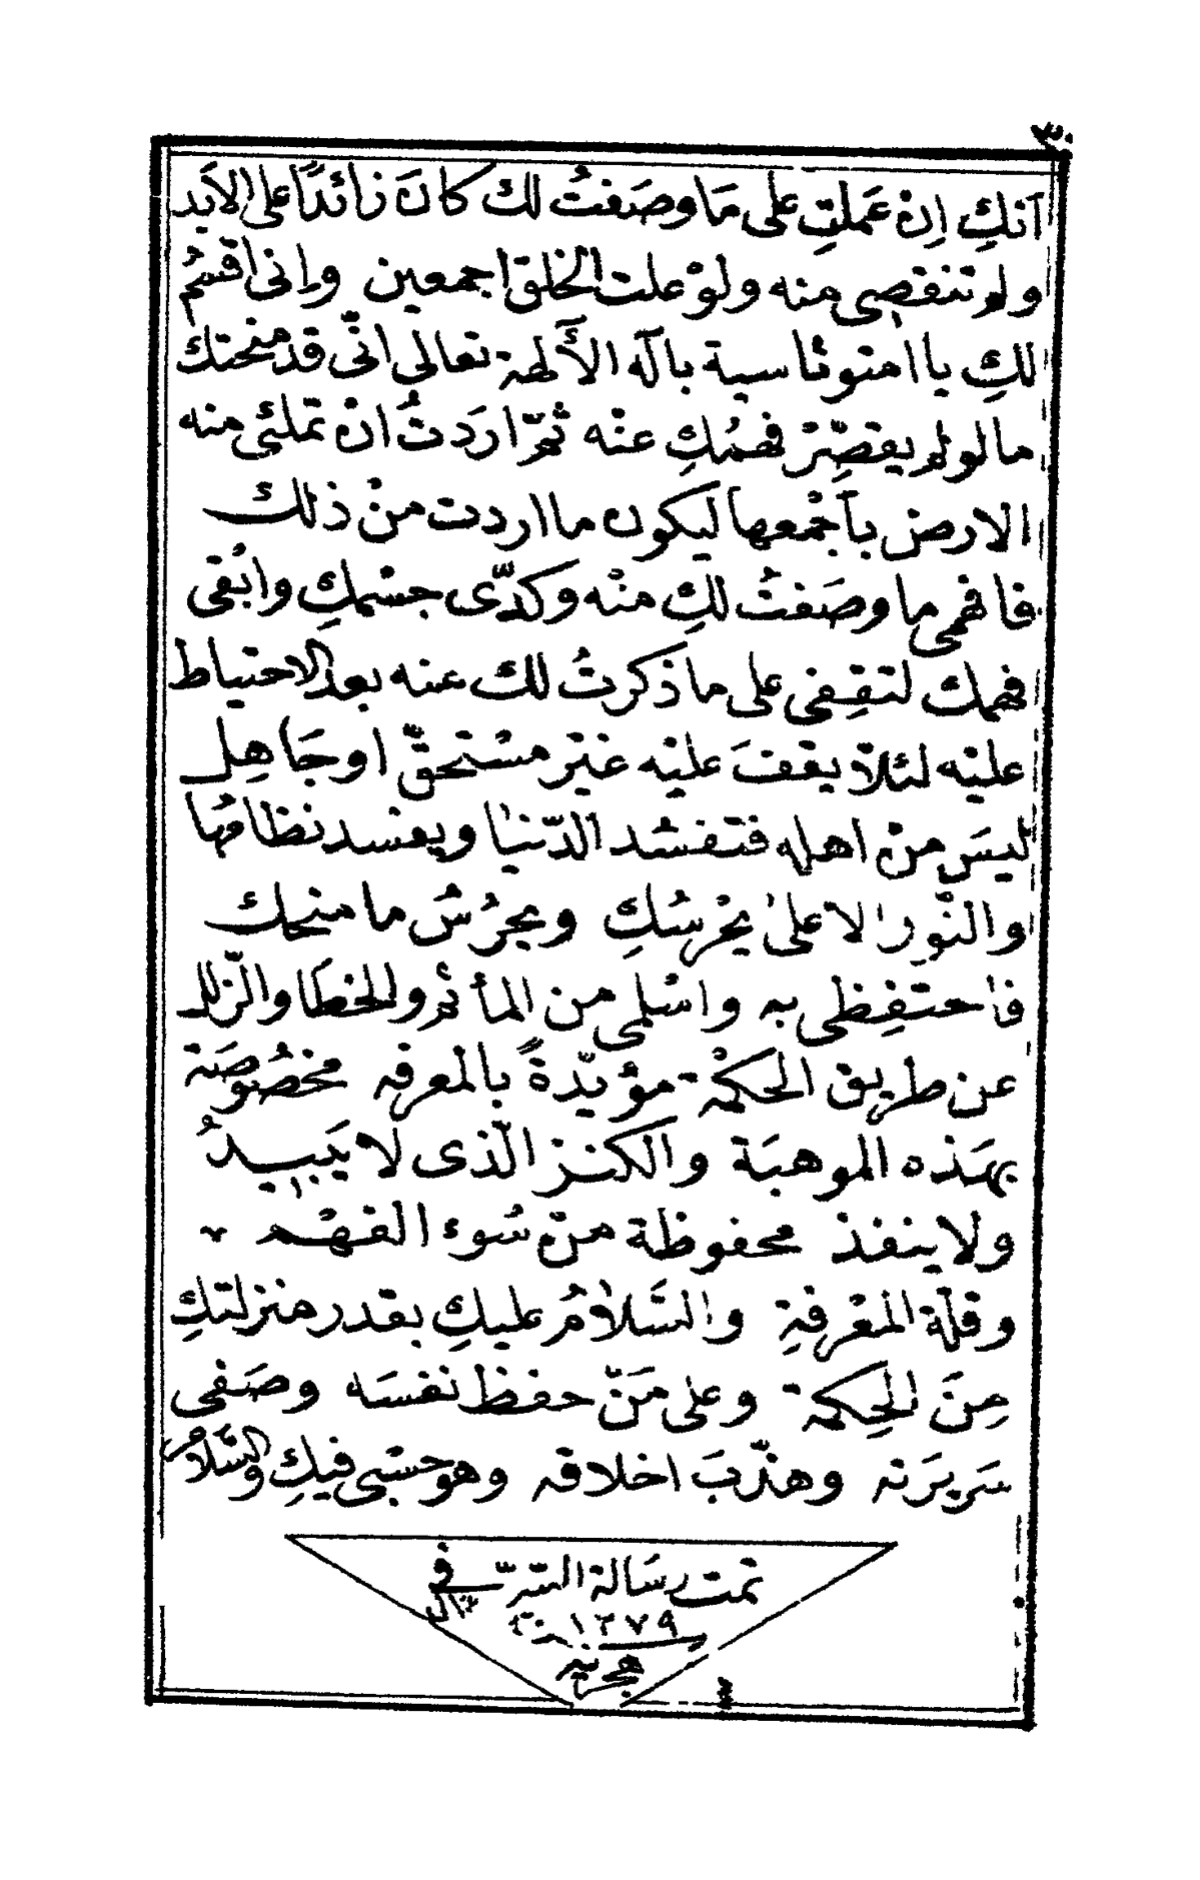 ٣٠
أنكِ اِنْ عَملتِ على مَا وصَفتُ لك كان زائدًا على الابد
ولم تنقصى منه ولو علت الخلق اجمعين وانى اقسم
لكِ يا امتوثاسية بآله الألهة تعالى انّى قد منحتك
ما لو لم يقصِّرْ فهمُكِ عنْه ثمّ اردتُ انْ تملئى منه
الارض بأجْمعها ليكون ما اردت منْ ذلك
فافهمى ما وصَفتُ لكِ منْه وكدّى جسْمكِ وابْقى
فهمك لتقِفى على ما ذكرتُ لك عنه بعد الاحتياط
عليْه لئلاّ يقفَ عليْه غيْر مسْتحقّ او جَاهِل
ليسَ منْ اهله فتفسُد الدّنيا ويفسد نظامُها
والنّور الاعلىٰ يحْرسُكِ ويحرُسُ ما منحك
فاحتفِظى به واسْلمى من المأثم والخطَا والزّلل
عن طريق الحكمْة مؤيّدةً بالمعرفه مخصُوصَة
بهَذه الموهبَة والكنز الّذى لا يَبيدُ
ولا ينفذ محفوظة منْ سُوء الفهْم
وقلّة المعْرفةِ والسَّلامُ عليكِ بقدر منزلتكِ
مِنَ الحِكمة وعلى مَنْ حفظ نفسَه وصَفى
سَريرَته وهذّبَ اخلاقه وهو حسْبى فيكِ والسَّلام
تمت رسَالة السّرّ فى
١٣٧٩ سنة
هجرية